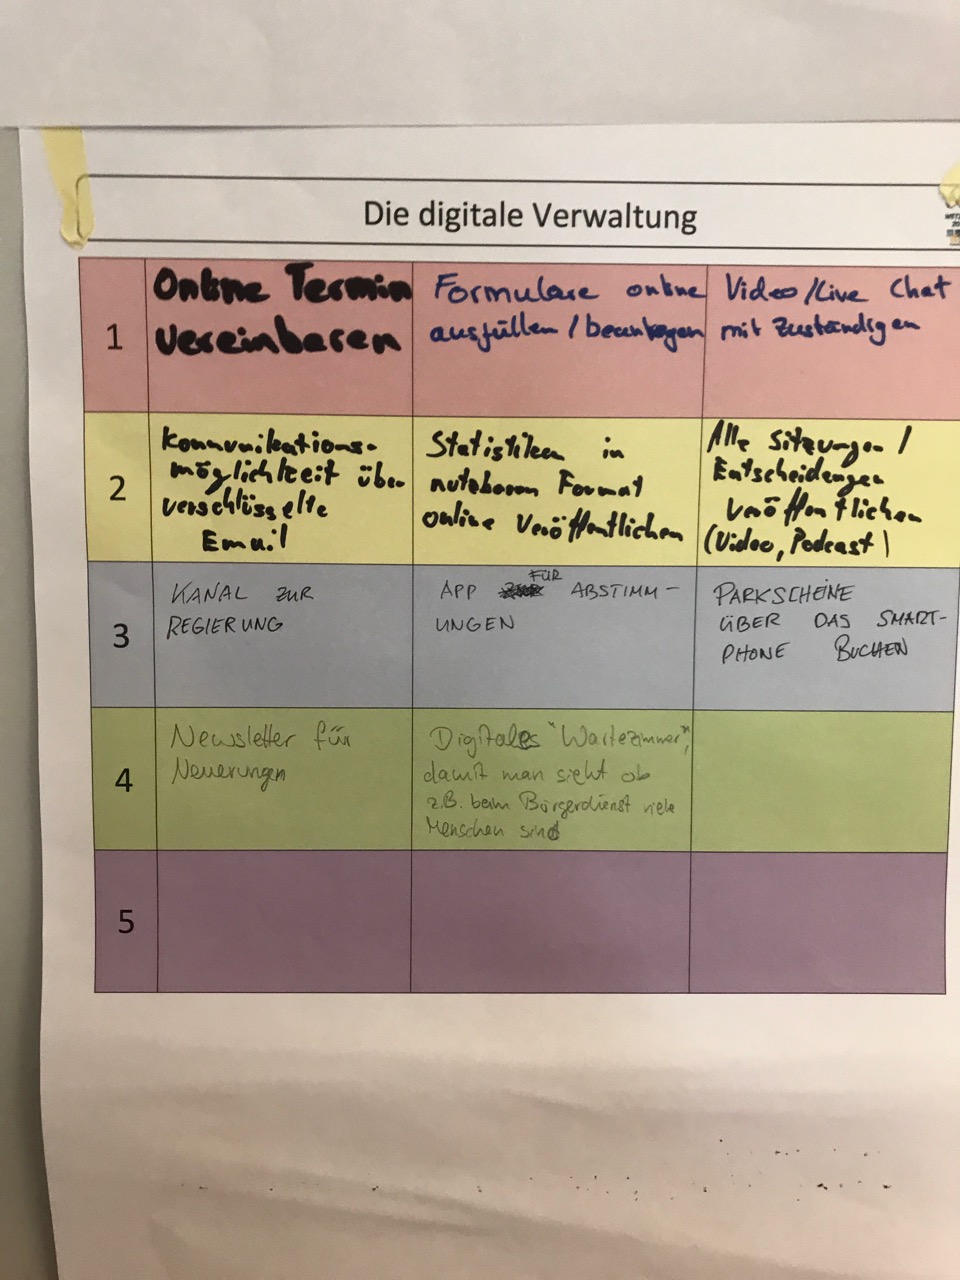 Die digitale Verwaltung
1
Online Termin
vereinbaren
Formulare online
ausfüllen / beantragen
Video/Live Chat
mit Zuständigen
2
Kommunikations-
möglichkeit über
verschlüsselte
Email
Statistiken in
nutzbarem Format
online veröffentlichen
Alle Sitzungen /
Entscheidungen
veröffentlichen
(Video, Podcast)
3
KANAL ZUR
REGIERUNG
APP FÜR ABSTIMM-
UNGEN
PARKSCHEINE
ÜBER DAS SMART-
PHONE BUCHEN
4
Newsletter für
Neuerungen
Digitales "Wartezimmer",
damit man sieht ob
z.B. beim Bürgerdienst viele
Menschen sind
5